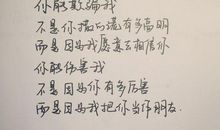 你能欺骗我
不是你撒的谎有多高明
而是因为我愿意去相信你
你能伤害我
不是因为你有多厉害
而是因为我把你当作朋友.